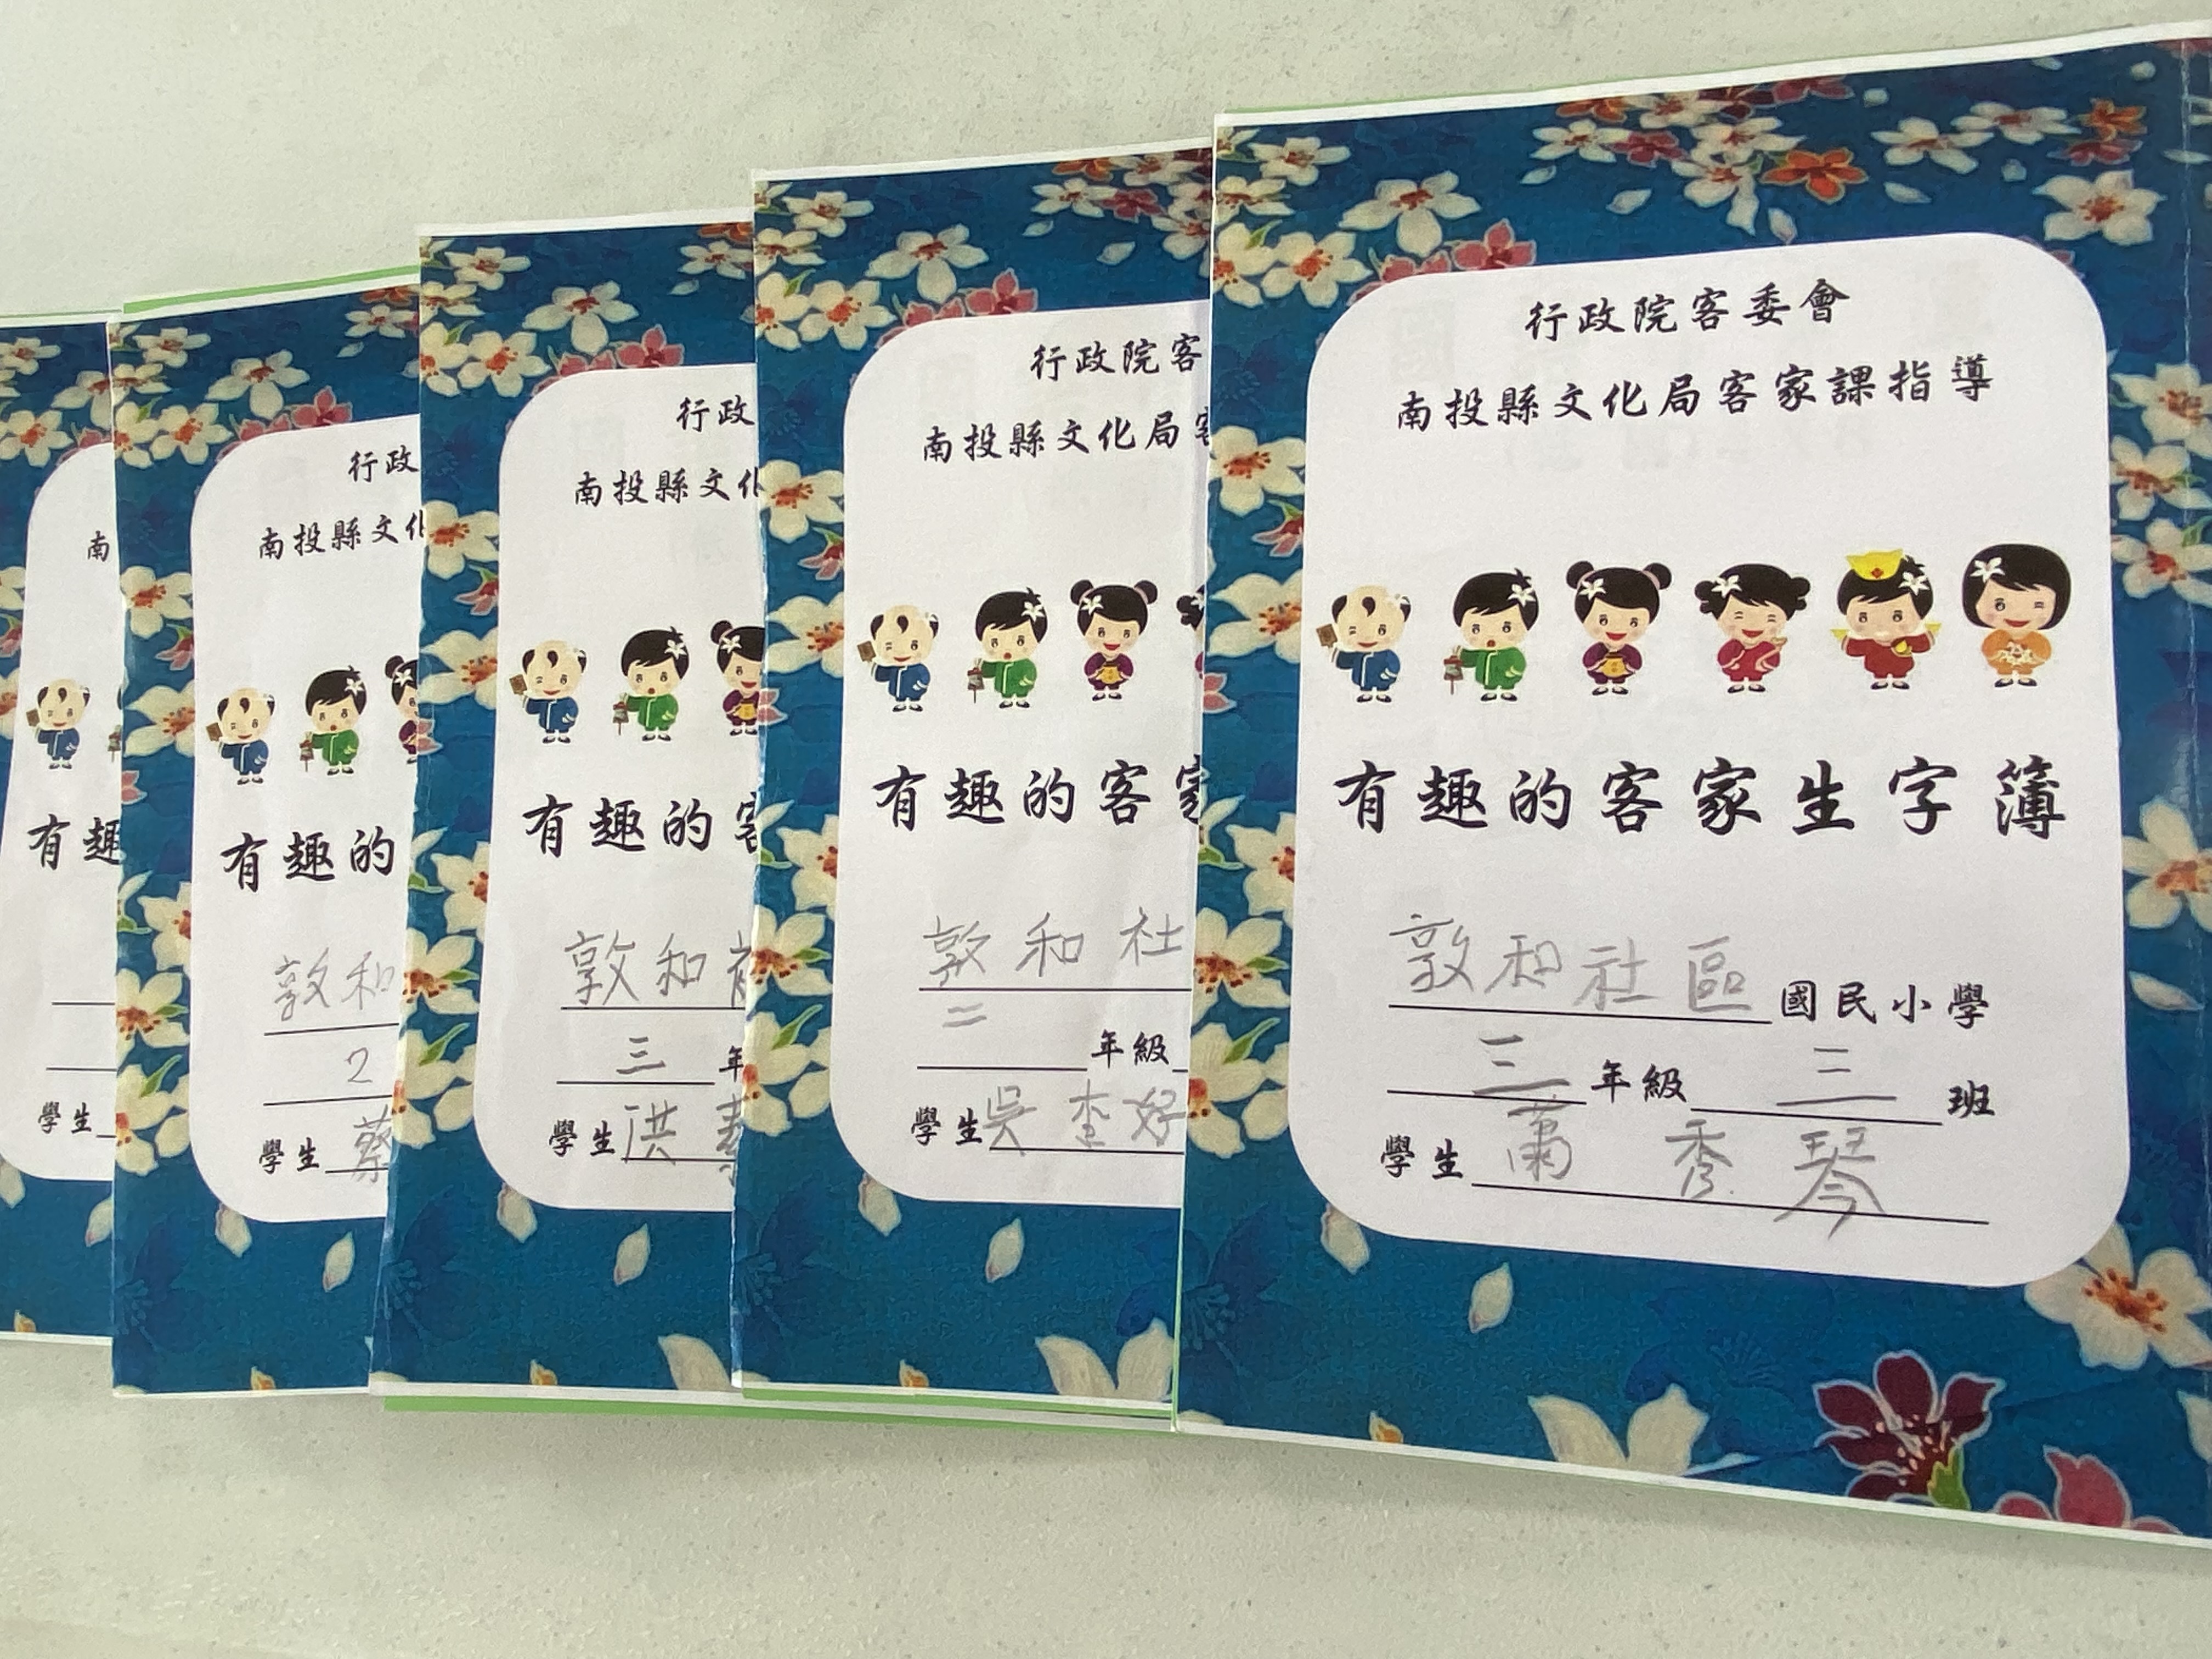 南
有趣
學生
行政
南投縣文化
有趣的
敦和
2
學生 蔡
行政
南投縣文化
有趣的客
敦和社
三 年
學生 洪素
行政院客
南投縣文化局客
有趣的客家
敦和社
二 年級
學生 吳 好
行政院客委會
南投縣文化局客家課指導
有趣的客家生字簿
敦和社區 國民小學
三 年級 三 班
學生 蕭秀琴